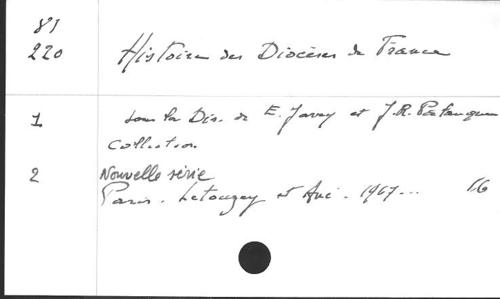 81
220 Histoire des Diocèses de France
1 sous la Dir. de E. Jarry et J.R. Palanque
Collection
2 Nouvelle série
Paris. Letouzey et Ané. 1967... 16